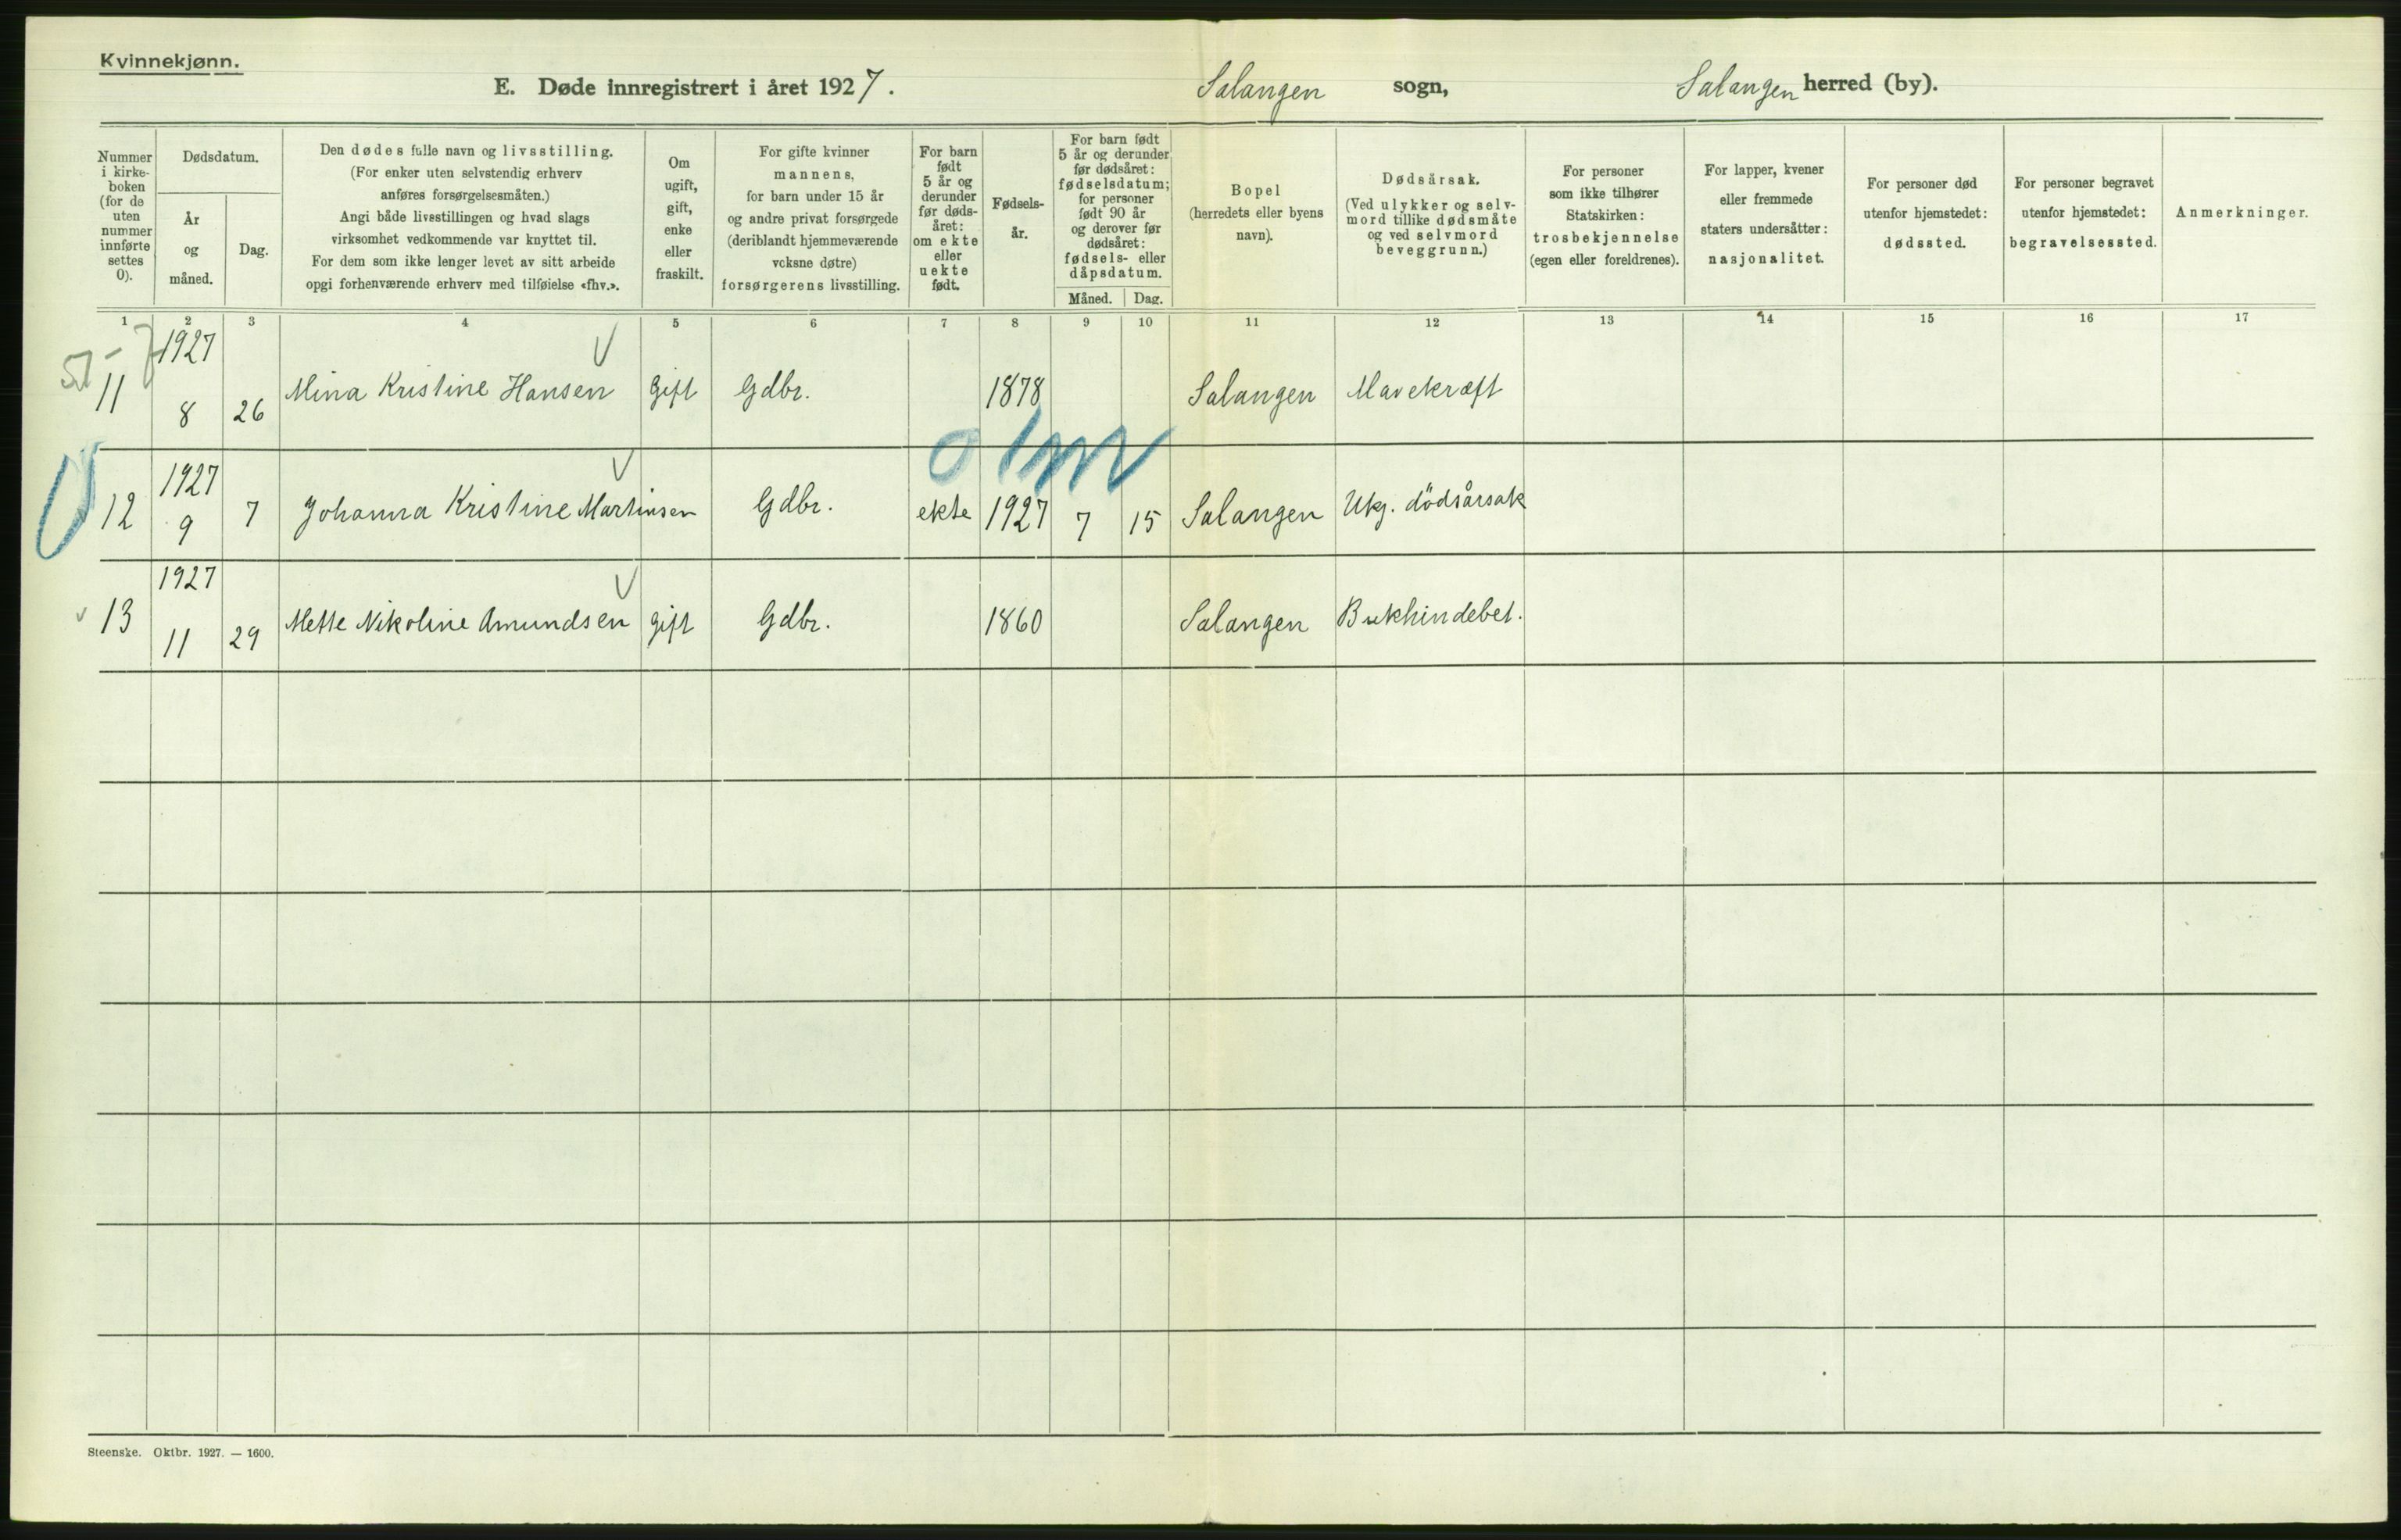 Kvinnekjønn.
E. Døde innregistrert i året 1927. Salangen sogn, Salangen herred (by).
Nummer i kirke-boken (for de uten nummer innførte settes 0).
Dødsdatum.
År og måned.
Dag.
Den dødes fulle navn og livsstilling.
(For enker uten selvstendig erhverv
anføres forsørgelsesmåten.)
Angi både livsstillingen og hvad slags
virksomhet vedkommende var knyttet til.
For dem som ikke lenger levet av sitt arbeide
opgi forhenværende erhverv med tilføielse «fhv.».
Om
ugift,
gift,
enke
eller
fraskilt.
For gifte kvinner
mannens,
for barn under 15 år
og andre privat forsørgede
(deriblandt hjemmeværende
voksne døtre)
forsørgerens livsstilling.
For barn
født
5 år og
derunder
før døds-
året:
om ekte
eller
uekte
født.
Fødsels-
år.
For barn født
5 år og derunder
før dødsåret:
fødselsdatum;
for personer
født 90 år
og derover før
dødsåret:
fødsels- eller
dåpsdatum.
Måned. Dag.
Bopel
(herredets eller byens
navn).
Dødsårsak.
(Ved ulykker og selv-
mord tillike dødsmåte
og ved selvmord
beveggrunn.)
For personer
som ikke tilhører
Statskirken:
trosbekjennelse
(egen eller foreldrenes).
For lapper, kvener
eller fremmede
staters undersåtter:
nasjonalitet.
For personer død
utenfor hjemstedet:
dødssted.
For personer begravet
utenfor hjemstedet:
begravelsessted.
Anmerkninger.
1 2 3 4 5 6 7 8 9 10 11 12 13 14 15 16 17
11 1927 8 26 Mina Kristine Hansen gift Gdbr. 1878 Salangen Mavekræft
0 1m
12 1927 9 7 Johanna Kristine Martinsen Gdbr. ekte 1927 7 15 Salangen Ukj. dödsårsak
13 1927 11 29 Mette Nikoline Amundsen gift Gdbr. 1860 Salangen Bukhindebet.
Steenske. Oktbr. 1927. — 1600.